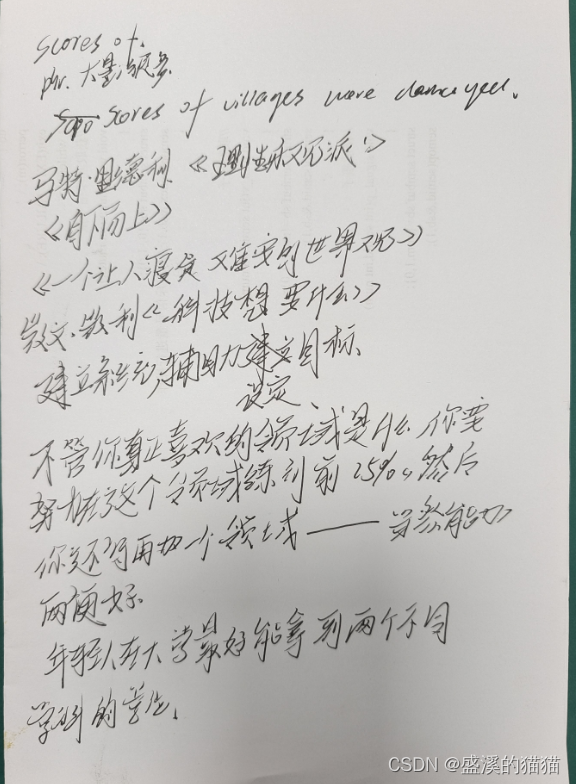 Scores of.
phr. 大量的,很多.
Scores of villages were damaged.
马特·里德利 《理性乐观派》
《自下而上》
《一个让人寝食难安的世界观》
凯文·凯利《科技想要什么》
建立系统,辅助力建立目标、
设定、
不管你真正喜欢的领域是什么,你要
努力在这个领域练到前25%。然后
你还得再加一个领域——当然能加
两个更好
年轻人在大学最好能拿到两个不同
学科的学位、
CSDN @盛溪的猫猫